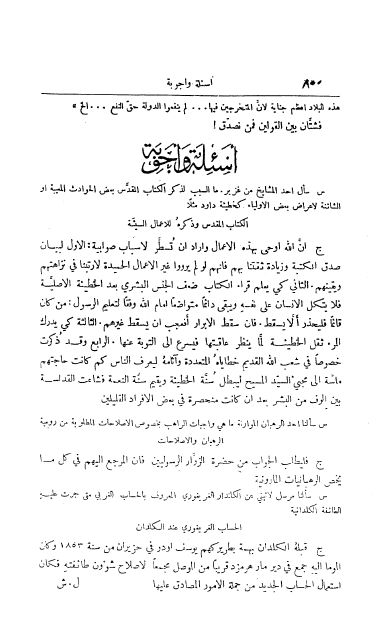 ٨٥٠ اسئلة واجوبة
هذه البلاد اعظم جناية لانَّ المتخرجين فيها... لم ينفعوا الدولة حقّ النفع ... الخ »
فشتَّان بين القولين فمن نصدّق !
اسئلة واجوبة
س سأل احد المشايخ من غزير. ما السبب لذكر الكتاب المقدَّس بعض الحوادث المعيبة او
الشائنة لاعراض بعض الاولياء كخطيئة داود مثلًا
الكتاب المقدس وذكرهُ للاعمال السيّئة
ج انَّ الله اوحى بهذه الاعمال واراد ان تُسطَّر لاسباب صوابية: الاول لبيان
صدق الكتبة وزيادة ثقتنا بهم فانهم لو لم يرووا غير الاعمال الحميدة لارتبنا في نزاهتهم
ويقينهم. الثاني كي يعلم قراء الكتاب ضعف الجنس البشري بعد الخطيئة الاصليَّة
فلا يتَّكل الانسان على نفسهِ ويبقى دائمًا متواضعًا امام الله وفقًا لتعليم الرسول: من كان
قائمًا فليحذر ألَّا يسقط. فان سقط الابرار أفنعجب ان يسقط غيرهم. الثالثة كي يدرك
المرء ثقل الخطيئة لمَّا ينظر عاقبتها فيسرع الى التوبة عنها. الرابع وقد ذُكرت
خصوصًا في شعب الله القديم خطاياهُ المتعددة وآثامهُ ليعرف الناس كم كانت حاجتهم
ماسَّة الى مجيّ السيّد المسيح ليبطل سُنَّة الخطيئة ويقيم سنَّة النعمة فشاعت القداسة
بين ألوف من البشر بعد ان كانت منحصرة في بعض الافراد القليلين
س سألنا احد الرهبان الموارنة ما هي واجبات الراهب بخصوص الاصلاحات المطلوبة من رومية
الرهبان والاصلاحات
ج فليطلب الجواب من حضرة الزوَّار الرسوليين فان المرجع اليهم في كل ما
يخص الرهبانيات المارونية
س سألنا مرسل لاتيني عن الكلندار الغريغوري المعروف بالحساب الغربي متى جرت عليهِ
الطائفة الكلدانية
الحساب الغريغوري عند الكلدان
ج قبلهُ الكلدان بهمة بطريركهم يوسف اودو في حزيران من سنة ١٨٥٣ وكان
الموما اليه جمع في دير مار هرمزد قريبًا من الموصل مجمعًا لاصلاح شؤون طائفتهِ فكان
استعمال الحساب الجديد من جملة الامور المصادق عليها ل . ش